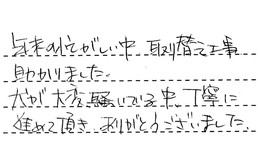 年末の忙がしい中 取り替え工事
助かりました。
犬が大変騒いでいる中、丁寧に
進めて頂き ありがとうございました。